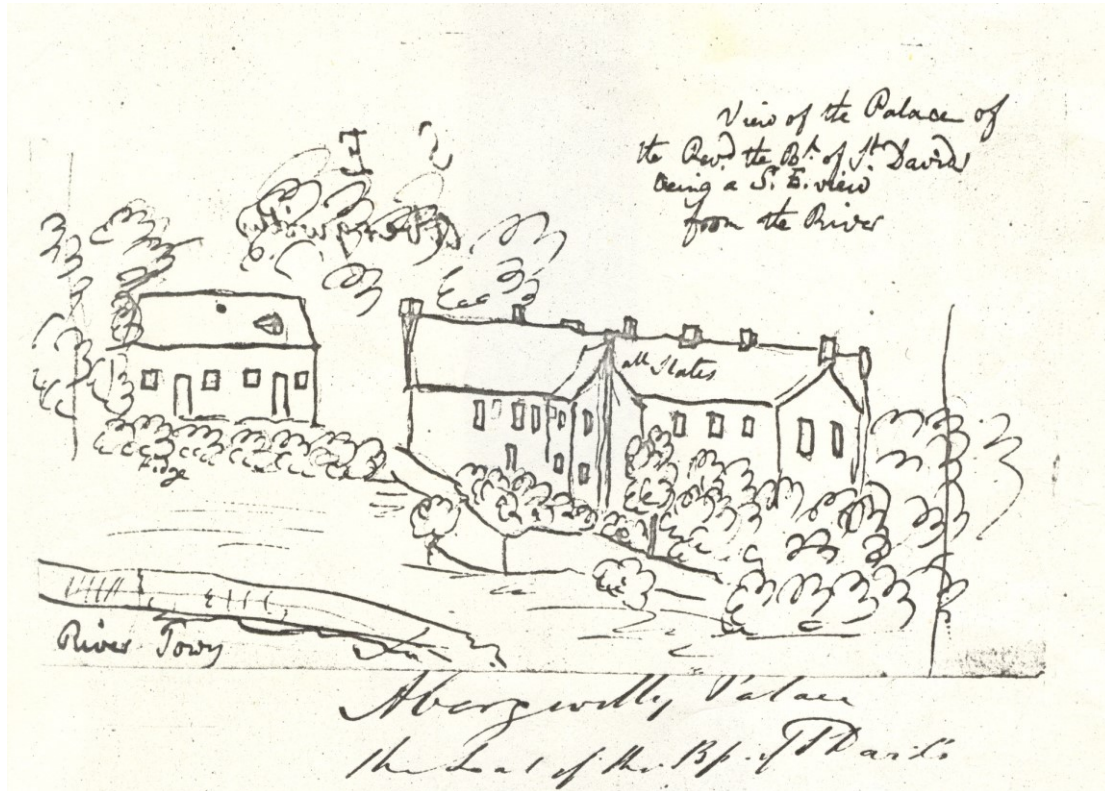 View of the Palace of
the Revd. the Bp. of St. Davids
being a S. E. view
from the River
all Slates
River Towy
Abergwilly Palace
the Seat of the Bp. of St Davids